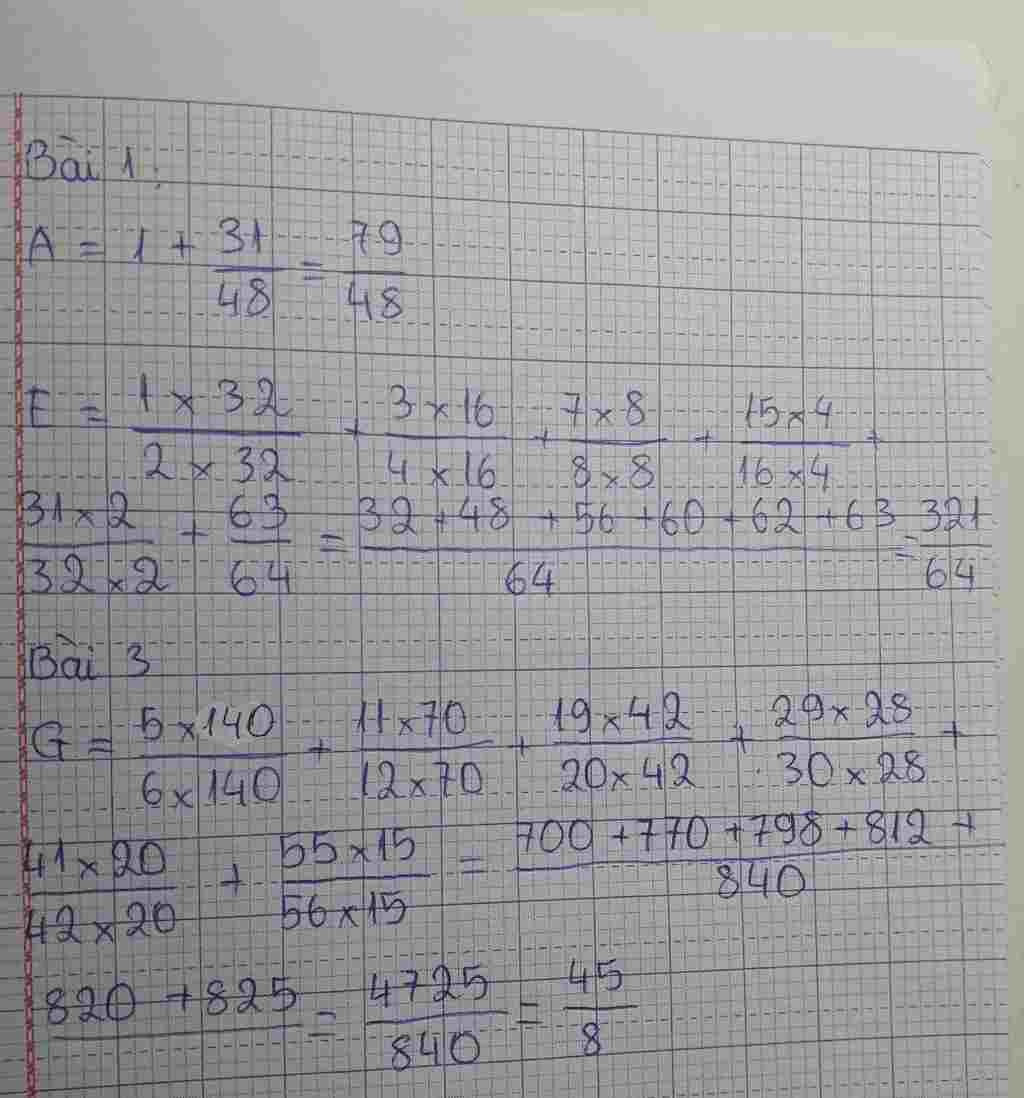 Bài 1:
A = 1 + 31/48 = 79/48
E = (1 x 32)/(2 x 32) + (3 x 16)/(4 x 16) + (7 x 8)/(8 x 8) + (15 x 4)/(16 x 4) +
(31 x 2)/(32 x 2) + 63/64 = (32 + 48 + 56 + 60 + 62 + 63)/64 = 321/64
Bài 3
G = (5 x 140)/(6 x 140) + (11 x 70)/(12 x 70) + (19 x 42)/(20 x 42) + (29 x 28)/(30 x 28) +
(41 x 20)/(42 x 20) + (55 x 15)/(56 x 15) = (700 + 770 + 798 + 812 +)/840
820 + 825 = 4725/840 = 45/8